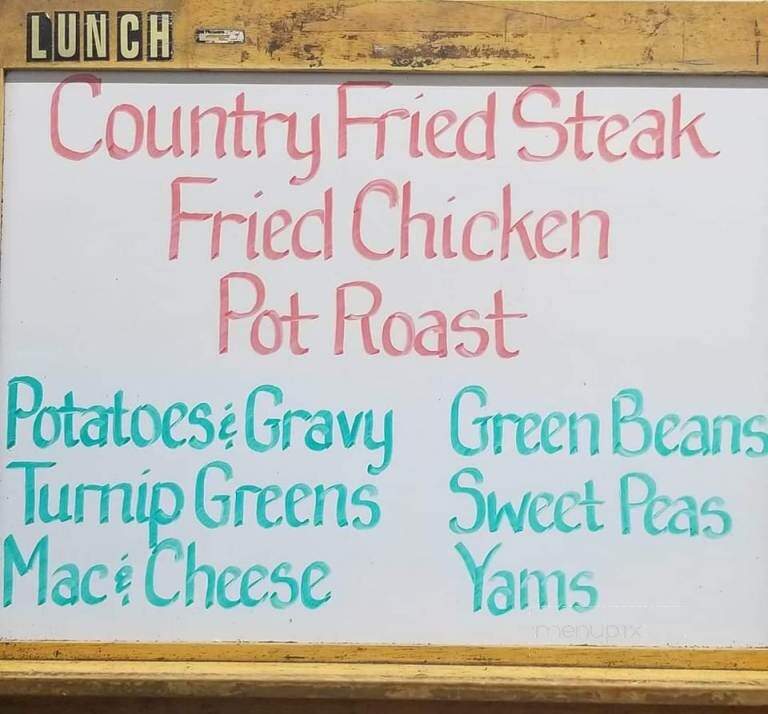 LUNCH
Country Fried Steak
Fried Chicken
Pot Roast
Potatoes & Gravy
Turnip Greens
Mac & Cheese
Green Beans
Sweet Peas
Yams
menupix